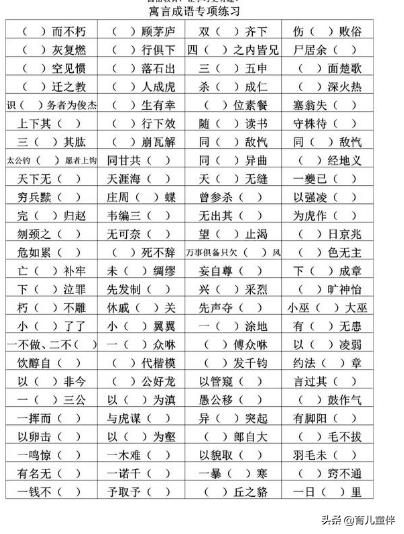 寓言成语专项练习
（ ）而不朽 （ ）顾茅庐 双（ ）齐下 伤（ ）败俗
（ ）灰复燃 （ ）行俱下 四（ ）之内皆兄 尸居余（ ）
（ ）空见惯 （ ）落石出 三（ ）五申 （ ）面楚歌
（ ）迁之教 （ ）人成虎 杀（ ）成仁 （ ）深火热
识（ ）务者为俊杰 （ ）生有幸 （ ）位素餐 塞翁失（ ）
上下其（ ） （ ）行下效 随（ ）读书 守株待（ ）
三（ ）其肱 （ ）崩瓦解 同（ ）敌忾 同（ ）敌忾
太公钓（ ）愿者上钩 同甘共（ ） 同（ ）异曲 （ ）经地义
天下无（ ） 天涯海（ ） 天（ ）无缝 一夔己（ ）
穷兵黩（ ） 庄周（ ）蝶 曾参杀（ ） 以强凌（ ）
完（ ）归赵 韦编三（ ） 无出其（ ） 为虎作（ ）
刎颈之（ ） 无可奈（ ） 望（ ）止渴 （ ）日京兆
危如累（ ） （ ）死不辞 万事俱备只欠（ ）风 （ ）色无主
亡（ ）补牢 未（ ）绸缪 妄自尊（ ） 下（ ）成章
下（ ）泣罪 先发制（ ） 兴（ ）采烈 （ ）旷神怡
朽（ ）不雕 休戚（ ）关 先声夺（ ） 小巫（ ）大巫
小（ ）了了 小（ ）翼翼 一（ ）涂地 有（ ）无患
一不做、二不（ ） 一（ ）众咻 （ ）傅众咻 以（ ）凌弱
饮醇自（ ） （ ）代楷模 （ ）发千钧 约法（ ）章
以（ ）非今 （ ）公好龙 以管窥（ ） 言过其（ ）
一（ ）三公 以（ ）为滇 愚公移（ ） （ ）鼓作气
一挥而（ ） 与虎谋（ ） 异（ ）突起 有脚阳（ ）
以卵击（ ） 以（ ）为壑 （ ）郎自大 （ ）毛不拔
一鸣惊（ ） 一木难（ ） 以貌取（ ） 羽毛未（ ）
有名无（ ） 一诺千（ ） 一暴（ ）寒 （ ）窍不通
一钱不（ ） 予取予（ ） （ ）丘之貉 一日（ ）里
头条 @育儿童伴